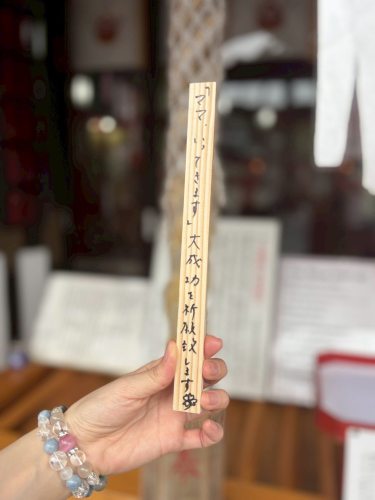 「ママ、いってきます」大成功を祈願致します